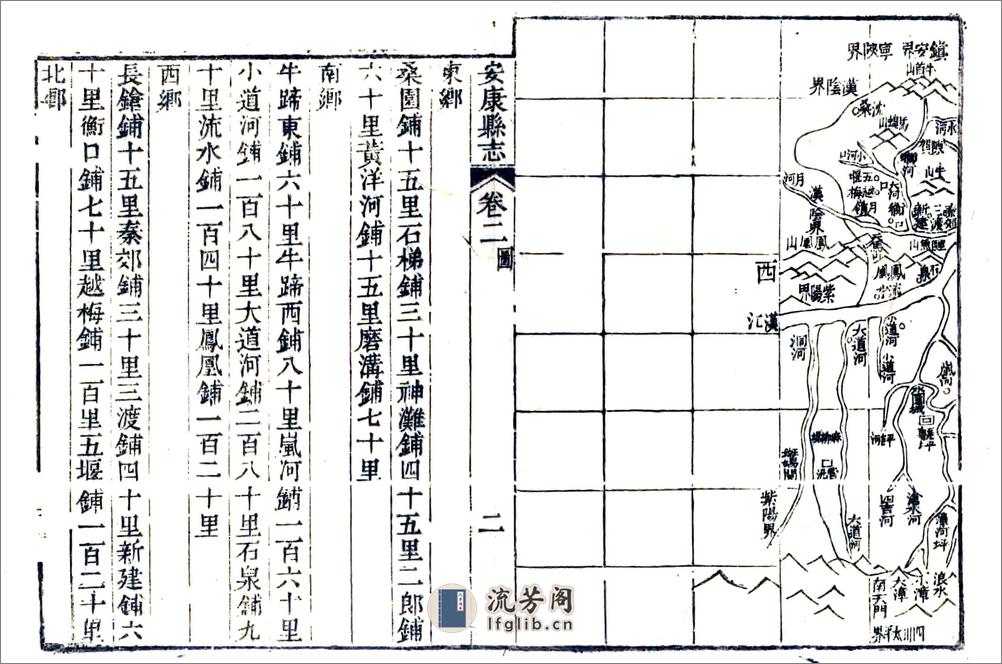 鎮安界
寧陜界
牛首山
漢陰界
馬鞍山
月河
漢陰界
牛山
鳳凰山
紫陽界
西
漢江
洞河
大道河
小道河
小道河
嵐河
紫陽界
大道河
滄浪河
溢河坪
浪水
小漳
大漳
南天門
四川太平界
安康縣志
卷二
圖
二
東鄉
桑園鋪十五里石梯鋪三十里神灘鋪四十五里二郎鋪
六十里黃洋河鋪十五里磨溝鋪七十里
南鄉
牛蹄東鋪六十里牛蹄西鋪八十里嵐河鋪一百六十里
小道河鋪一百八十里大道河鋪二百八十里石泉鋪九
十里流水鋪一百四十里鳳凰鋪一百二十里
西鄉
長鎗鋪十五里秦郊鋪三十里三渡鋪四十里新建鋪六
十里衡口鋪七十里越梅鋪一百里五堰鋪一百二十里
北鄉
流芳阁
lfglib.cn